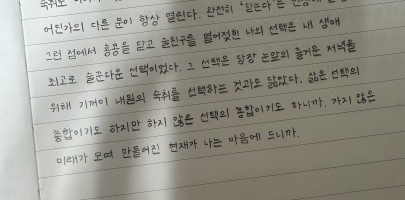 어딘가의 다른 문이 항상 열린다. 완전히 '닫는다'는
그런 점에서 홍콩을 닫고 술친구를 열어젖힌 나의 선택은 내 생애
최고로 술꾼다운 선택이었다. 그 선택은 당장 눈앞의 즐거운 저녁을
위해 기꺼이 내일의 숙취를 선택하는 것과도 닮았다. 삶은 선택의
총합이기도 하지만 하지 않은 선택의 총합이기도 하니까. 가지 않은
미래가 모여 만들어진 현재가 나는 마음에 드니까.